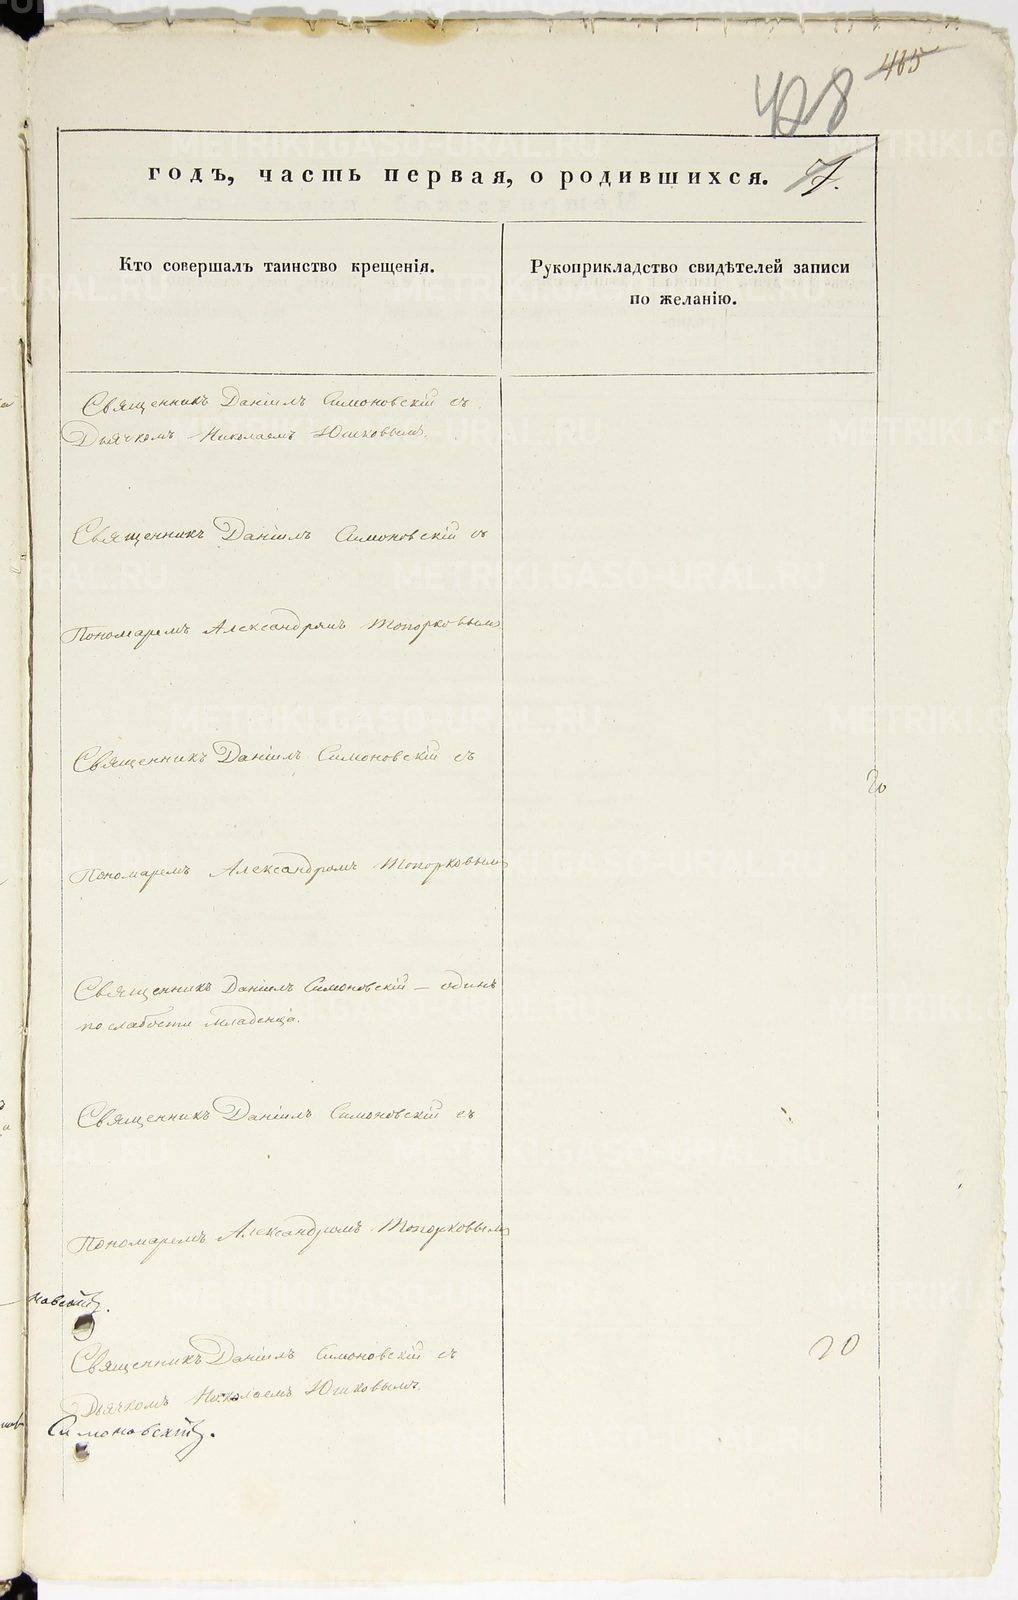 465
428
годъ, часть первая, о родившихся. 7.
Кто совершалъ таинство крещенія.
Рукоприкладство свидѣтелей записи
по желанію.
Священникъ Даніилъ Симоновскій съ
Дьячкомъ Николаемъ Юшковымъ.
Священникъ Даніилъ Симоновскій съ
Пономаремъ Александромъ Топорковымъ
Священникъ Даніилъ Симоновскій съ
20
Пономаремъ Александромъ Топорковымъ
Священникъ Даніилъ Симоновскій — одинъ
по слабости младенца.
Священникъ Даніилъ Симоновскій съ
Пономаремъ Александромъ Топорковымъ
Священникъ Даніилъ Симоновскій съ
20
Дьячкомъ Николаемъ Юшковымъ.
Симоновскій.
METRIKI.GASO-URAL.RU